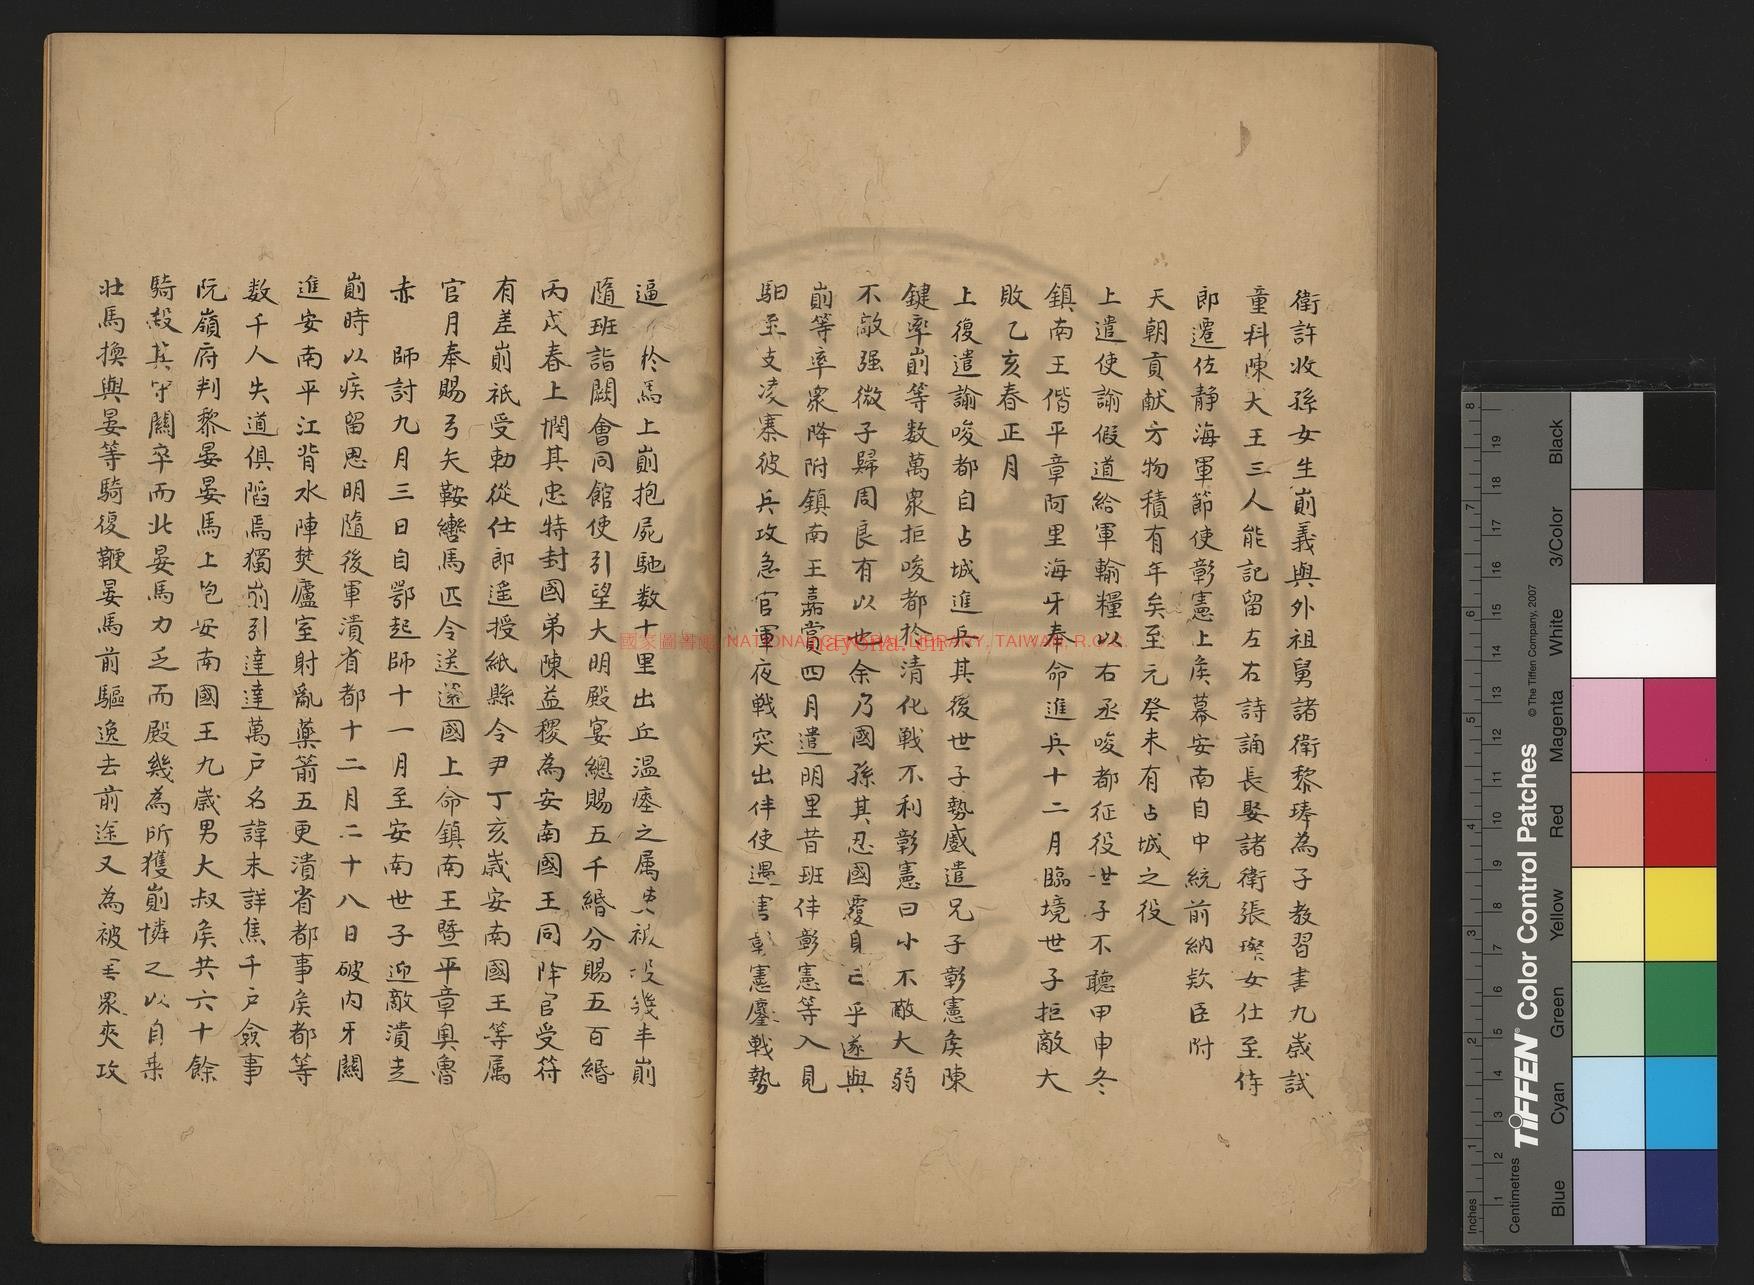 衛許收孫女生崱義與外祖舅諸衛黎琫為子教習書九歲試
童科陳大王三人能記留左右詩誦長娶諸衛張璨女仕至侍
郎遷佐静海軍節使彰憲上矦幕安南自中統前納欵臣附
天朝貢献方物積有年矣至元癸未有占城之役
上遣使諭假道給軍輸糧以右丞唆都征役世子不聽甲申冬
鎮南王偕平章阿里海牙奉命進兵十二月臨境世子拒敵大
敗乙亥春正月
上復遣諭唆都自占城進兵其後世子勢蹙遣兄子彰憲矦陳
鍵率崱等数萬衆拒唆都於清化戦不利彰憲曰小不敵大弱
不敵强微子歸周良有以也余乃國孫其忍國覆身亡乎遂與
崱等率衆降附鎮南王嘉賞四月遣明里昔班伴彰憲等入見
馹至支凌寨彼兵攻急官軍夜戦突出伴使遇害彰憲鏖戦勢
逼 於馬上崱抱屍馳数十里出丘温瘞之属吏被投幾半崱
隨班詣闕會同館使引望大明殿宴總賜五千緡分賜五百緡
丙戌春上憫其忠特封國弟陳益稷為安南國王同降官受符
有差崱祇受勅從仕郎遥授紙縣令尹丁亥歲安南國王等属
官月奉賜弓矢鞍轡馬匹令送還國上命鎮南王暨平章奥魯
赤 師討九月三日自鄂起師十一月至安南世子迎敵潰走
崱時以疾留思明隨後軍潰省都十二月二十八日破内牙關
進安南平江背水陣焚廬室射亂藥箭五更潰省都事矦都等
数千人失道俱䧟焉獨崱引達達萬戸名諱未詳焦千戸僉事
阮嶺府判黎晏晏馬上㐌安南國王九歲男大叔矦共六十餘
騎殺其守關卒而北晏馬力乏而殿幾為所獲崱憐之以自乗
壯馬換與晏等騎復鞭晏馬前驅逸去前途又為被 衆夾攻
國家圖書館 NATIONAL CENTRAL LIBRARY, TAIWAN, R.O.C.
Inches
Centimetres
TIFFEN® Color Control Patches
© The Tiffen Company, 2007
Blue
Cyan
Green
Yellow
Red
Magenta
White
3/Color
Black